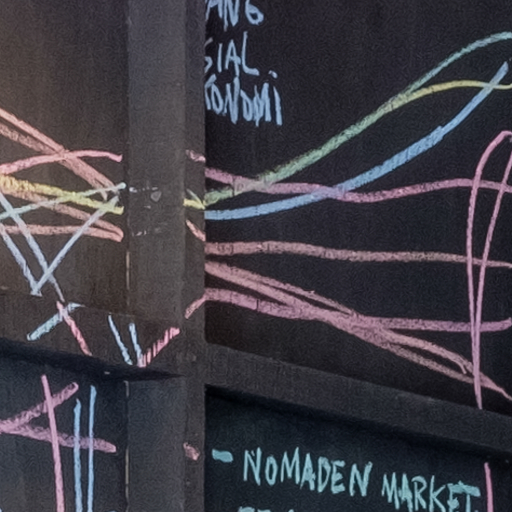 ANG
SIAL.
KONOMI
- NOMADEN MARKET